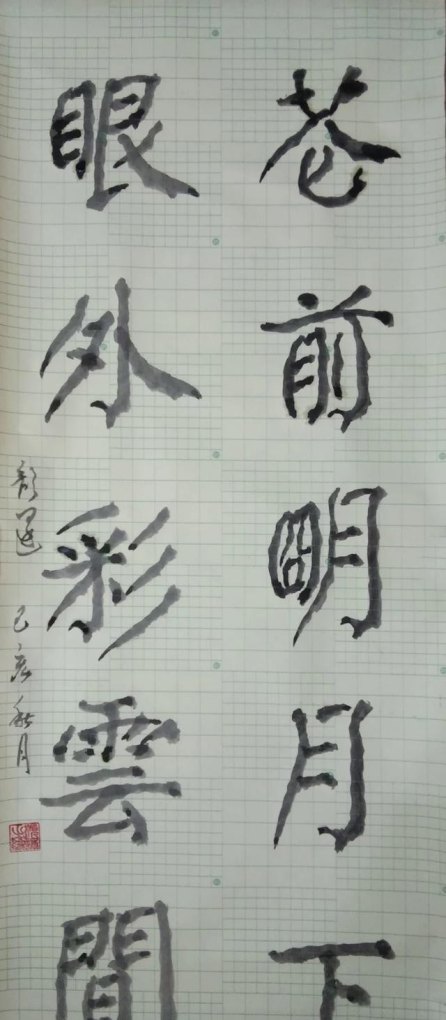 前明月下
眼外彩雲間
己亥秋月